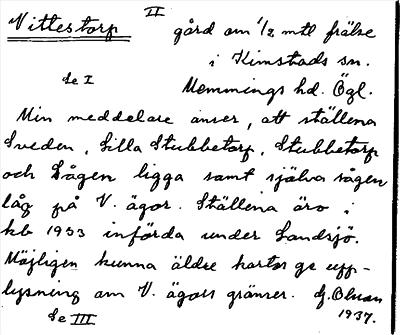 Vittestorp II gård om 1/2 mtl frälse
i Kimstads sn.
Se I Memmings hd. Ögl.
Min meddelare anser, att ställena
Sveden, Lilla Stubbetorp, Stubbetorp
och Sågen ligga samt själva sågen
låg på V. ägor. Ställena äro i
kb 1933 införda under Landsjö.
Möjligen kunna äldre kartor ge upp-
lysning om V. ägors gränser. Hj. Olman
Se III 1937.